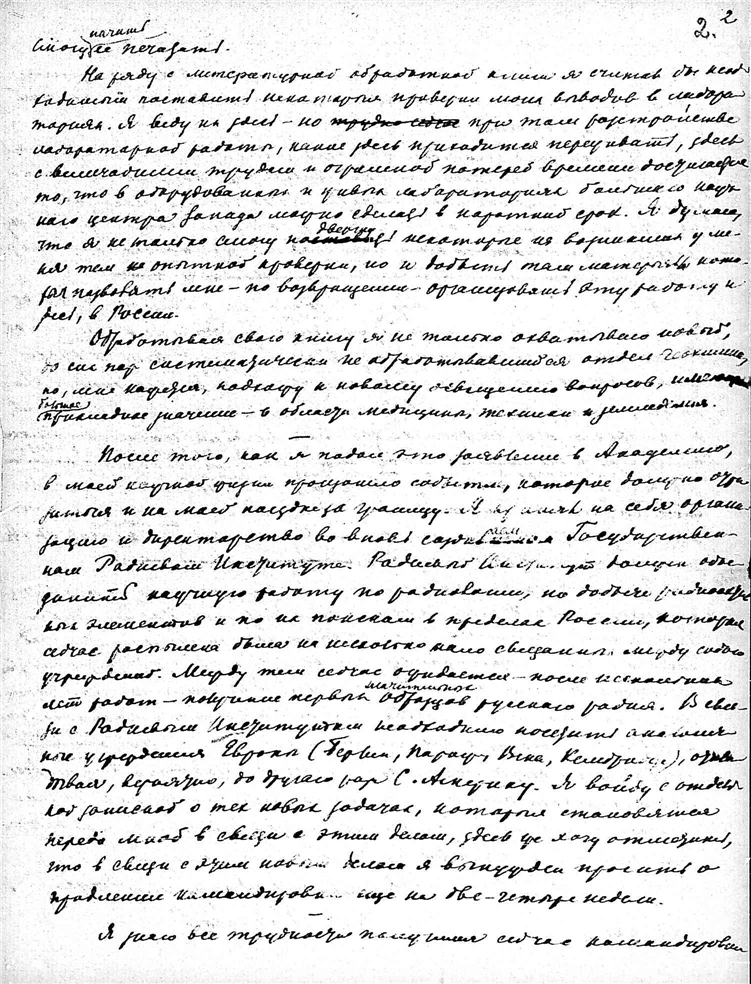 2. 2
начать
смогу ее печатать.
На ряду с литературной обработкой книги я считаю бы необ-
ходимым поставить некоторые проверки моих выводов в лабора-
ториях. Я веду их здесь – но трудно сейчас при том расстройстве
лабораторной работы, какие здесь приходится переживать, здесь
с величайшим трудом и огромной потерей времени достигается
то, что в оборудованных и живых лабораториях большого науч-
ного центра Запада можно сделать в короткий срок. Я думаю,
что я не только смогу подвергнуть некоторые из возникших у ме-
ня тем опытной проверки, но и добыть там материал, кото-
рый позволит мне – по возвращении – организовать эту работу и
здесь, в России.
Обрабатывая свою книгу я не только охватываю новый,
до сих пор систематически не обрабатывавшийся отдел геохимии,
но, мне кажется, подхожу к новому освещению вопросов, имеющих
большое
прикладное значение – в области медицины, техники и земледелия.
После того, как я подал это заявление в Академию,
в моей научной жизни произошло событие, которое должно отра-
зиться и на моей поездке за границу. Я принял на себя органи-
зацию и директорство во вновь создан ном Государствен-
ном Радиевом Институте. Радиевый Институт должен объе-
динить научную работу по радиоактив, по добыче радиоактив
ных элементов и по их поискам в пределах России, которая
сейчас распылена была на несколько мало связанных между собою
учреждений. Между тем сейчас ожидается – после нескольких
лет работ – получение первых значительных образцов русского радия. В свя-
зи с Радиевым Институтом необходимо посетить аналогич
ные учреждения Европы (Берлин, Париж, Вена, Кембридж), откла
дывая, вероятно, до другого раза С. Америку. Я войду с отдель
ной запиской о тех новых задачах, которые становятся
передо мной в связи с этим делом, здесь же хочу отметить,
что в связи с этим новым делом я вынужден просить о
продлении командировки еще на две-четыре недели.
Я знаю все трудности получения сейчас командировки